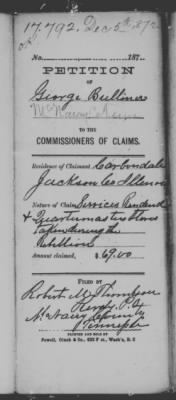 17.792. Dec 5th 1872
No. 187
PETITION
OF
George Bullmer
McNairy Co Tenn
TO THE
COMMISSIONERS OF CLAIMS.
Residence of Claimant Carbondale
Jackson Co Illinois
Nature of Claim Services Rendered
& Quartermaster Stores
Taken during the
Rebellion
Amount claimed, $69.00
FILED BY
Robert M Thompson
Henry P.O.
McNairy County
Tennessee
PRINTED AND SOLD BY
Powell, Ginck & Co., 632 F st., Wash'n, D. C